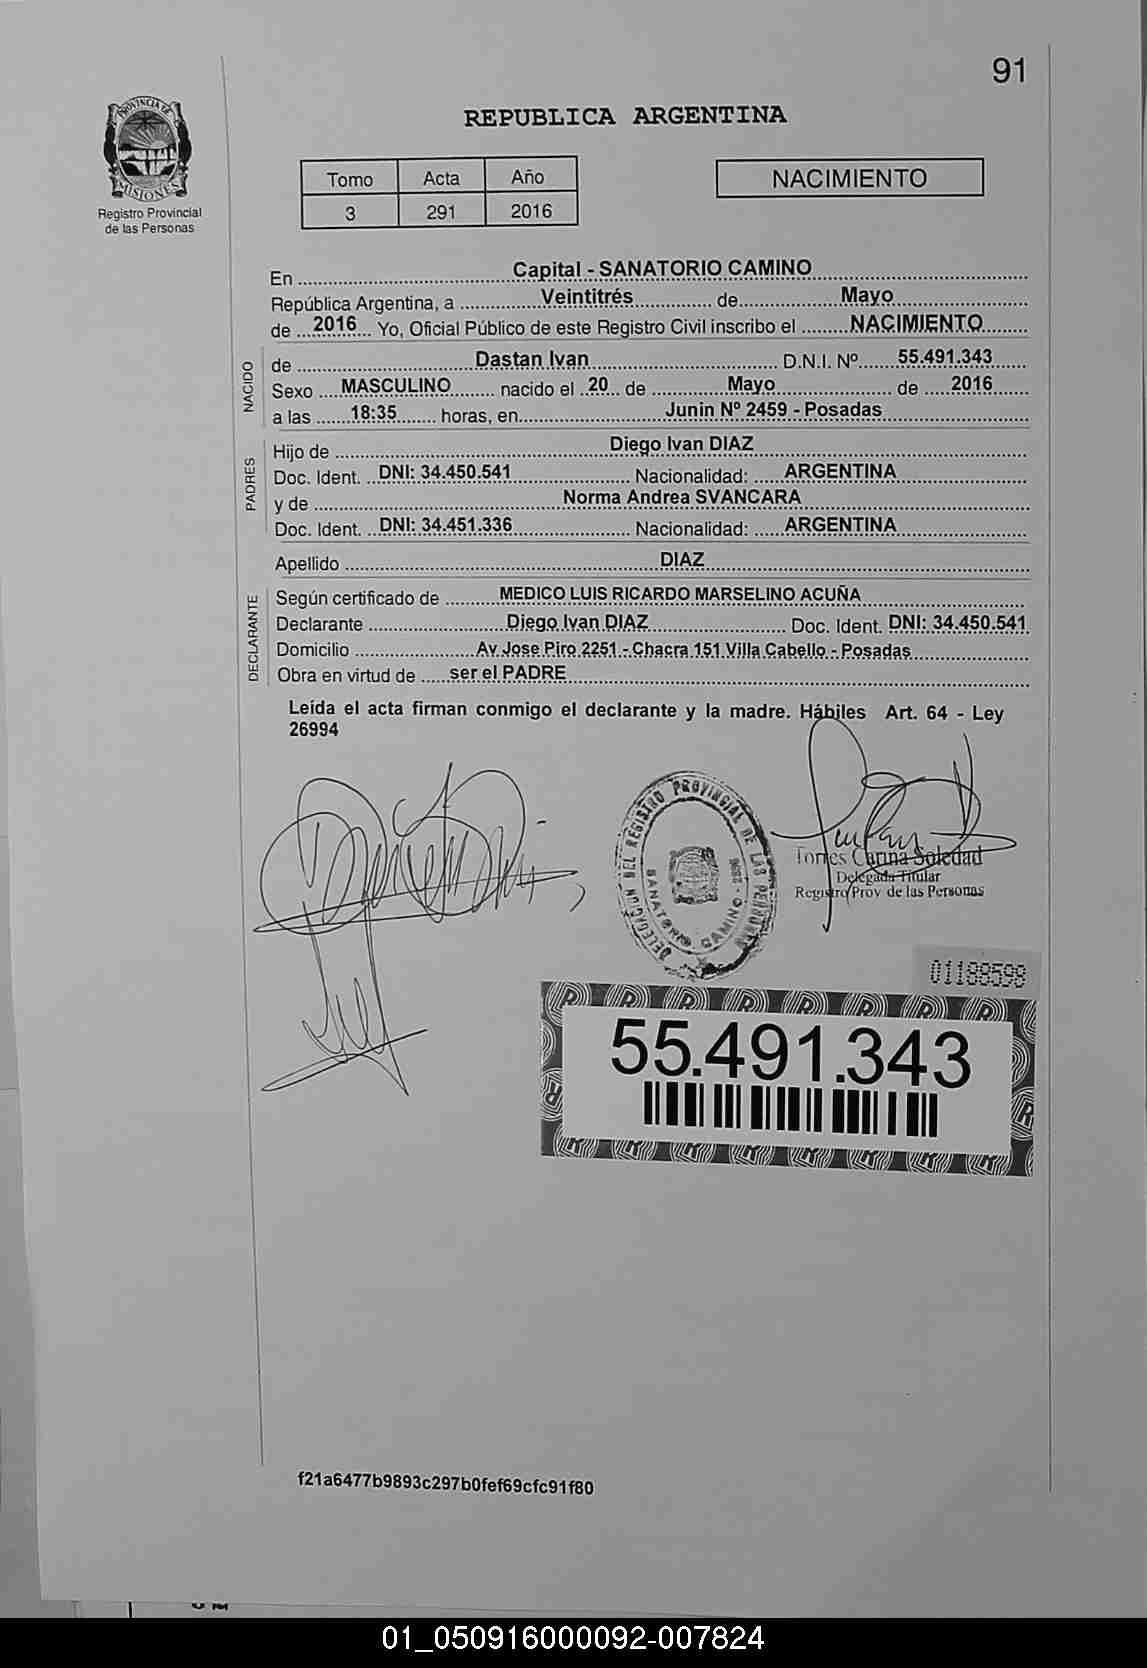 91
PROVINCIA DE
MISIONES
Registro Provincial
de las Personas
REPUBLICA ARGENTINA
Tomo Acta Año
3 291 2016
NACIMIENTO
En Capital - SANATORIO CAMINO
República Argentina, a Veintitrés de Mayo
de 2016 Yo, Oficial Público de este Registro Civil inscribo el NACIMIENTO
NACIDO
de Dastan Ivan D.N.I. Nº 55.491.343
Sexo MASCULINO nacido el 20 de Mayo de 2016
a las 18:35 horas, en Junin Nº 2459 - Posadas
PADRES
Hijo de Diego Ivan DIAZ
Doc. Ident. DNI: 34.450.541 Nacionalidad: ARGENTINA
y de Norma Andrea SVANCARA
Doc. Ident. DNI: 34.451.336 Nacionalidad: ARGENTINA
Apellido DIAZ
DECLARANTE
Según certificado de MEDICO LUIS RICARDO MARSELINO ACUÑA
Declarante Diego Ivan DIAZ Doc. Ident. DNI: 34.450.541
Domicilio Av Jose Piro 2251 - Chacra 151 Villa Cabello - Posadas
Obra en virtud de ser el PADRE
Leída el acta firman conmigo el declarante y la madre. Hábiles Art. 64 - Ley
26994
DELEGACION DEL REGISTRO PROVINCIAL DE LAS PERSONAS
SANATORIO CAMINO
Torres Carina Soledad
Delegada Titular
Registro Prov de las Personas
01188598
55.491.343
f21a6477b9893c297b0fef69cfc91f80
01_050916000092-007824